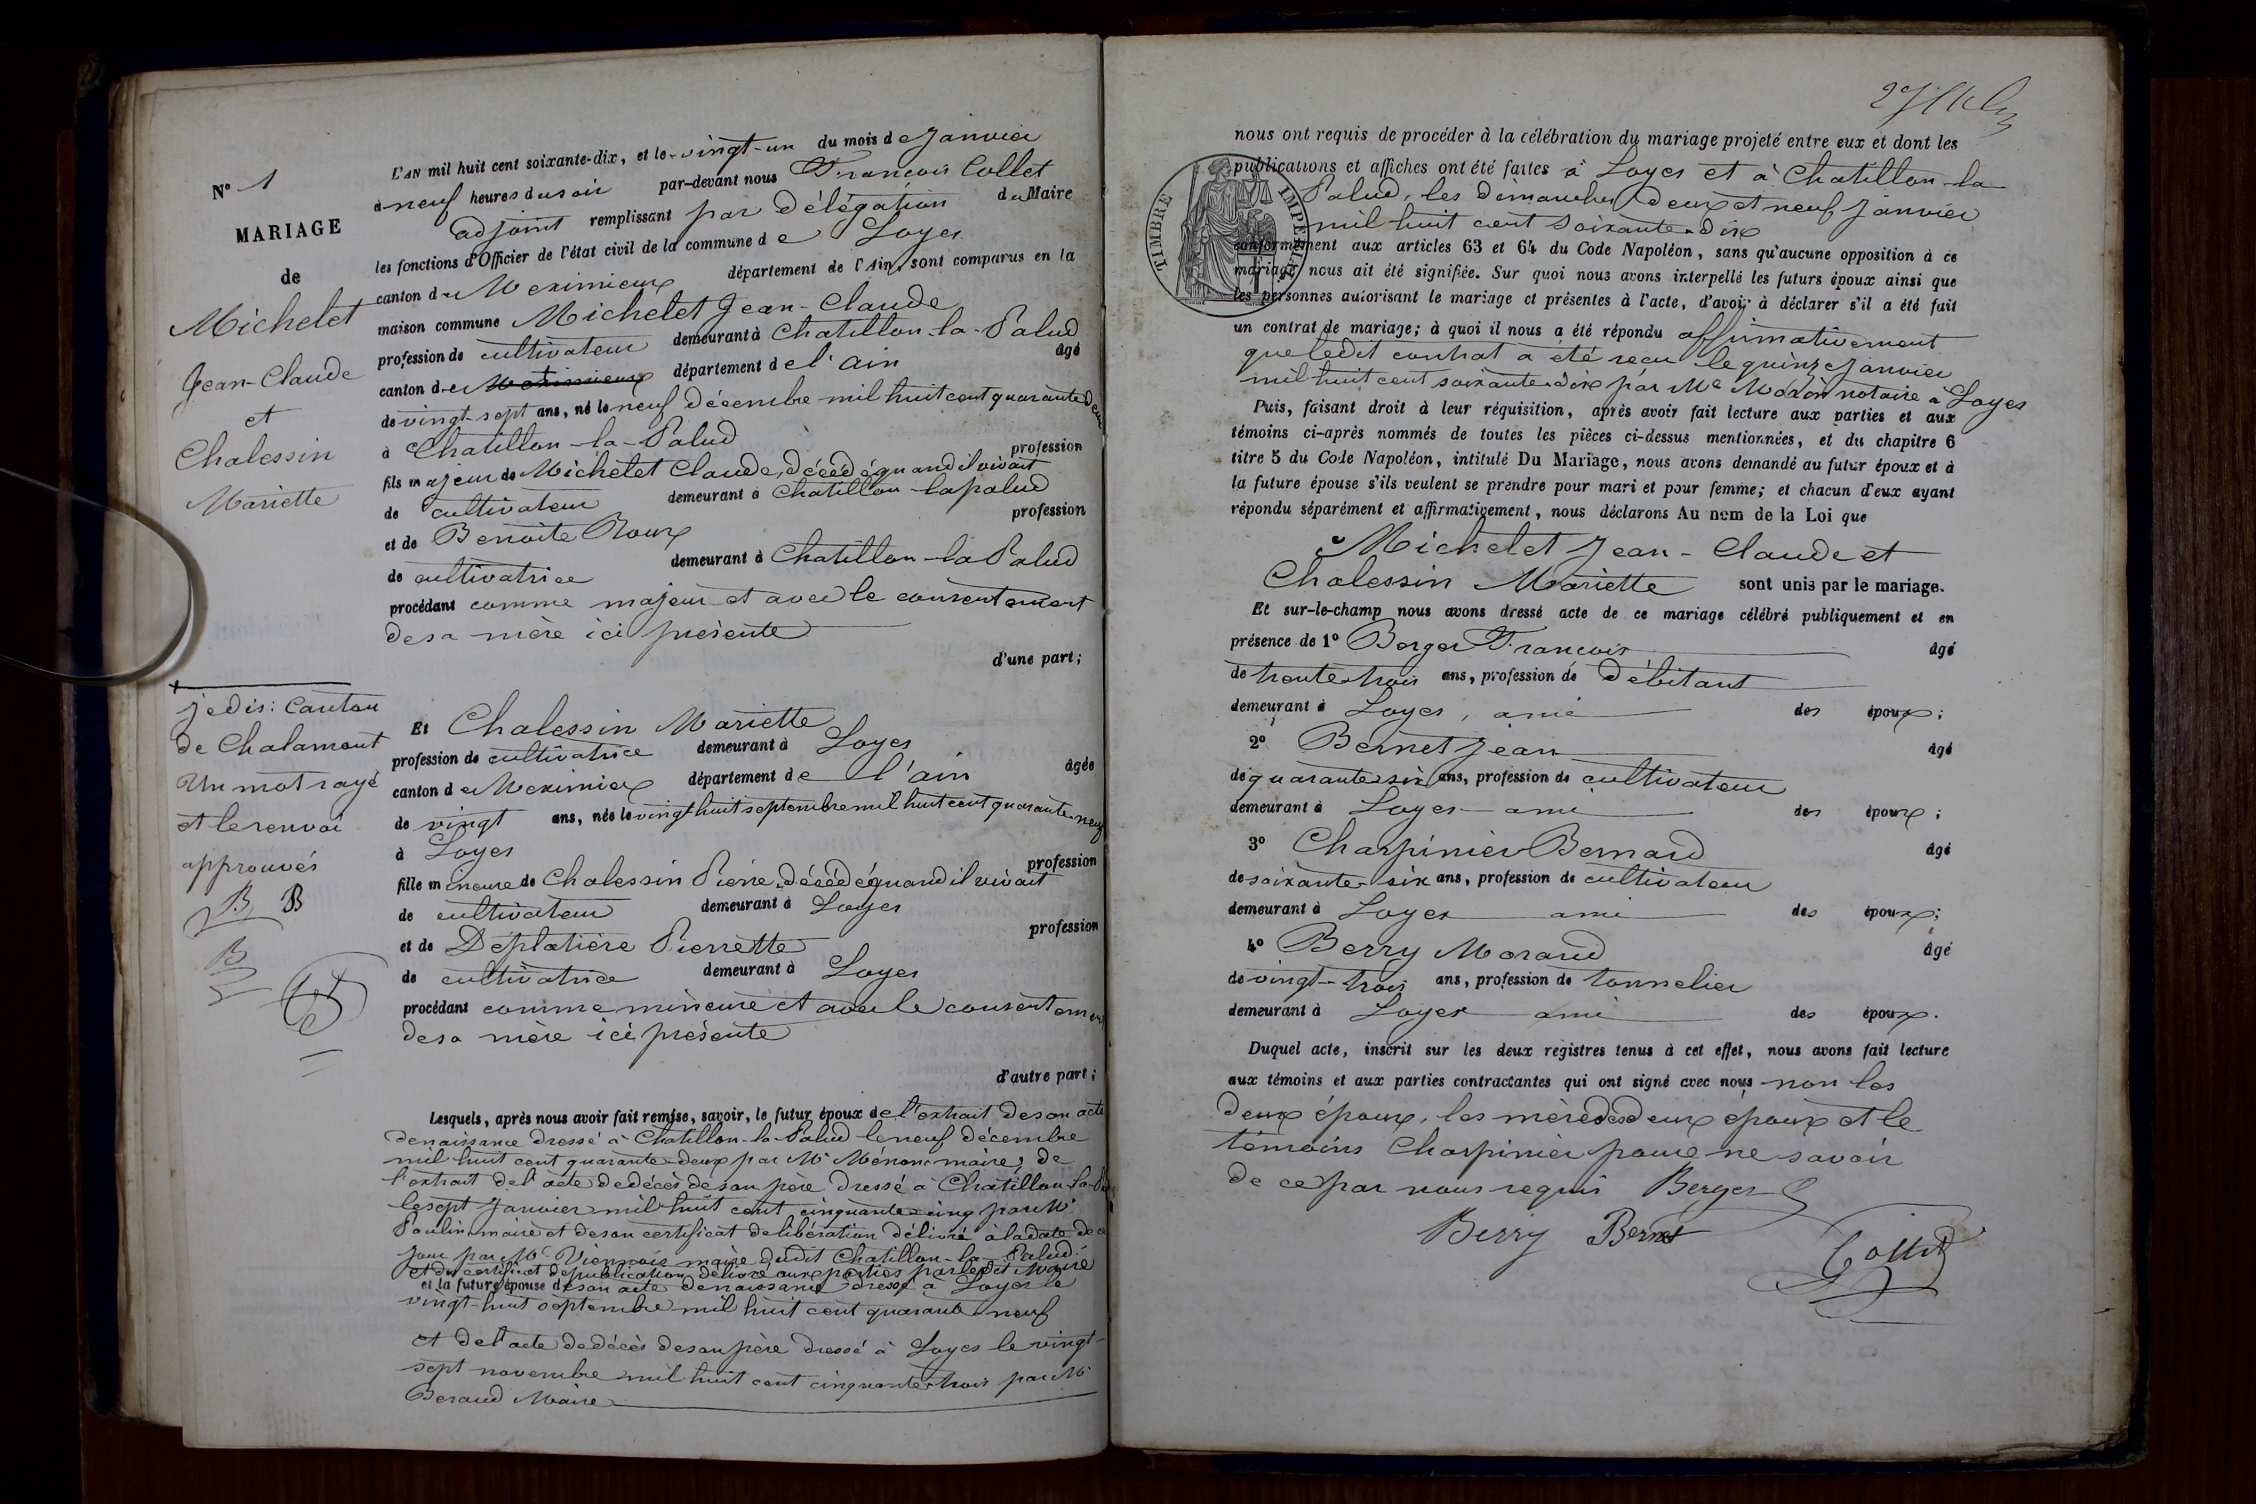 N° 1
MARIAGE
de
Michelet
Jean-Claude
et
Chalessin
Mariette
je dis: Canton
de Chalamont
Un mot rayé
et le renvoi
approuvés
B B
B
L'AN mil huit cent soixante-dix, et le vingt-un du mois de Janvier
à neuf heures du soir par-devant nous François Collet
adjoint remplissant par délégation du Maire
les fonctions d'Officier de l'état civil de la commune de Loyes
canton de Meximieux département de l'Ain, sont comparus en la
maison commune Michelet Jean-Claude
profession de cultivateur demeurant à Chatillon-la-Palud
canton de Meximieux département de l'ain âgé
de vingt-sept ans, né le neuf décembre mil huit cent quarante deux
à Chatillon-la-Palud profession
fils majeur de Michelet Claude, décédé quand il vivait
de cultivateur demeurant à Chatillon-la palud
et de Benoite Roux profession
de cultivatrice demeurant à Chatillon-la Palud
procédant comme majeur et avec le consentement
de sa mère ici présente
d'une part;
Et Chalessin Mariette
profession de cultivatrice demeurant à Loyes
canton de Meximieux département de l'ain âgée
de vingt ans, née le vingt huit septembre mil huit cent quarante-neuf
à Loyes
fille mineure de Chalessin Pierre, décédé quand il vivait profession
de cultivateur demeurant à Loyes
et de Déplatière Pierrette profession
de cultivatrice demeurant à Loyes
procédant comme mineure et avec le consentement
de sa mère ici présente
d'autre part;
Lesquels, après nous avoir fait remise, savoir, le futur époux de l'extrait de son acte
de naissance dressé à Chatillon-la-Palud le neuf décembre
mil huit cent quarante-deux par Mr maire, de
l'extrait de l'acte de décès de son père dressé à Chatillon-la-
le sept Janvier mil huit cent cinquante-cinq par Mr
Poulin maire et de son certificat de libération délivré à la date de ce
jour par Mr maire dudit Chatillon-la-Palud.
et du certificat de publication délivré aux parties par ledit Maire
et la future épouse de son acte de naissance dressé à Loyes le
vingt-huit septembre mil huit cent quarante neuf
et de l'acte de décès de son père dressé à Loyes le vingt-
sept novembre mil huit cent cinquante-trois par Mr
Beraud Maire
nous ont requis de procéder à la célébration du mariage projeté entre eux et dont les
publications et affiches ont été faites à Loyes et à Chatillon-la
Palud, les dimanches deux et neuf Janvier
mil huit cent soixante-dix
conformément aux articles 63 et 64 du Code Napoléon, sans qu'aucune opposition à ce
mariage nous ait été signifiée. Sur quoi nous avons interpellé les futurs époux ainsi que
les personnes autorisant le mariage et présentes à l'acte, d'avoir à déclarer s'il a été fait
un contrat de mariage; à quoi il nous a été répondu affirmativement
que ledit contrat a été reçu le quinze Janvier
mil huit cent soixante-dix par Me notaire à Loyes
Puis, faisant droit à leur réquisition, après avoir fait lecture aux parties et aux
témoins ci-après nommés de toutes les pièces ci-dessus mentionnées, et du chapitre 6
titre 5 du Code Napoléon, intitulé Du Mariage, nous avons demandé au futur époux et à
la future épouse s'ils veulent se prendre pour mari et pour femme; et chacun d'eux ayant
répondu séparément et affirmativement, nous déclarons Au nom de la Loi que
Michelet Jean-Claude et
Chalessin Mariette sont unis par le mariage.
Et sur-le-champ nous avons dressé acte de ce mariage célébré publiquement et en
présence de 1° Berger François âgé
de trente-trois ans, profession de débitant
demeurant à Loyes, ami des époux;
2° Bernet Jean âgé
de quarante-six ans, profession de cultivateur
demeurant à Loyes ami des époux;
3° Charpinier Bernard âgé
de soixante-six ans, profession de cultivateur
demeurant à Loyes ami des époux;
4° Berry Morand âgé
de vingt-trois ans, profession de tonnelier
demeurant à Loyes ami des époux.
Duquel acte, inscrit sur les deux registres tenus à cet effet, nous avons fait lecture
aux témoins et aux parties contractantes qui ont signé avec nous non les
deux époux, les mères des deux époux et le
témoins Charpinier pour ne savoir
de ce par nous requis Berger
Berry Bernet
Collet
TIMBRE IMPÉRIAL